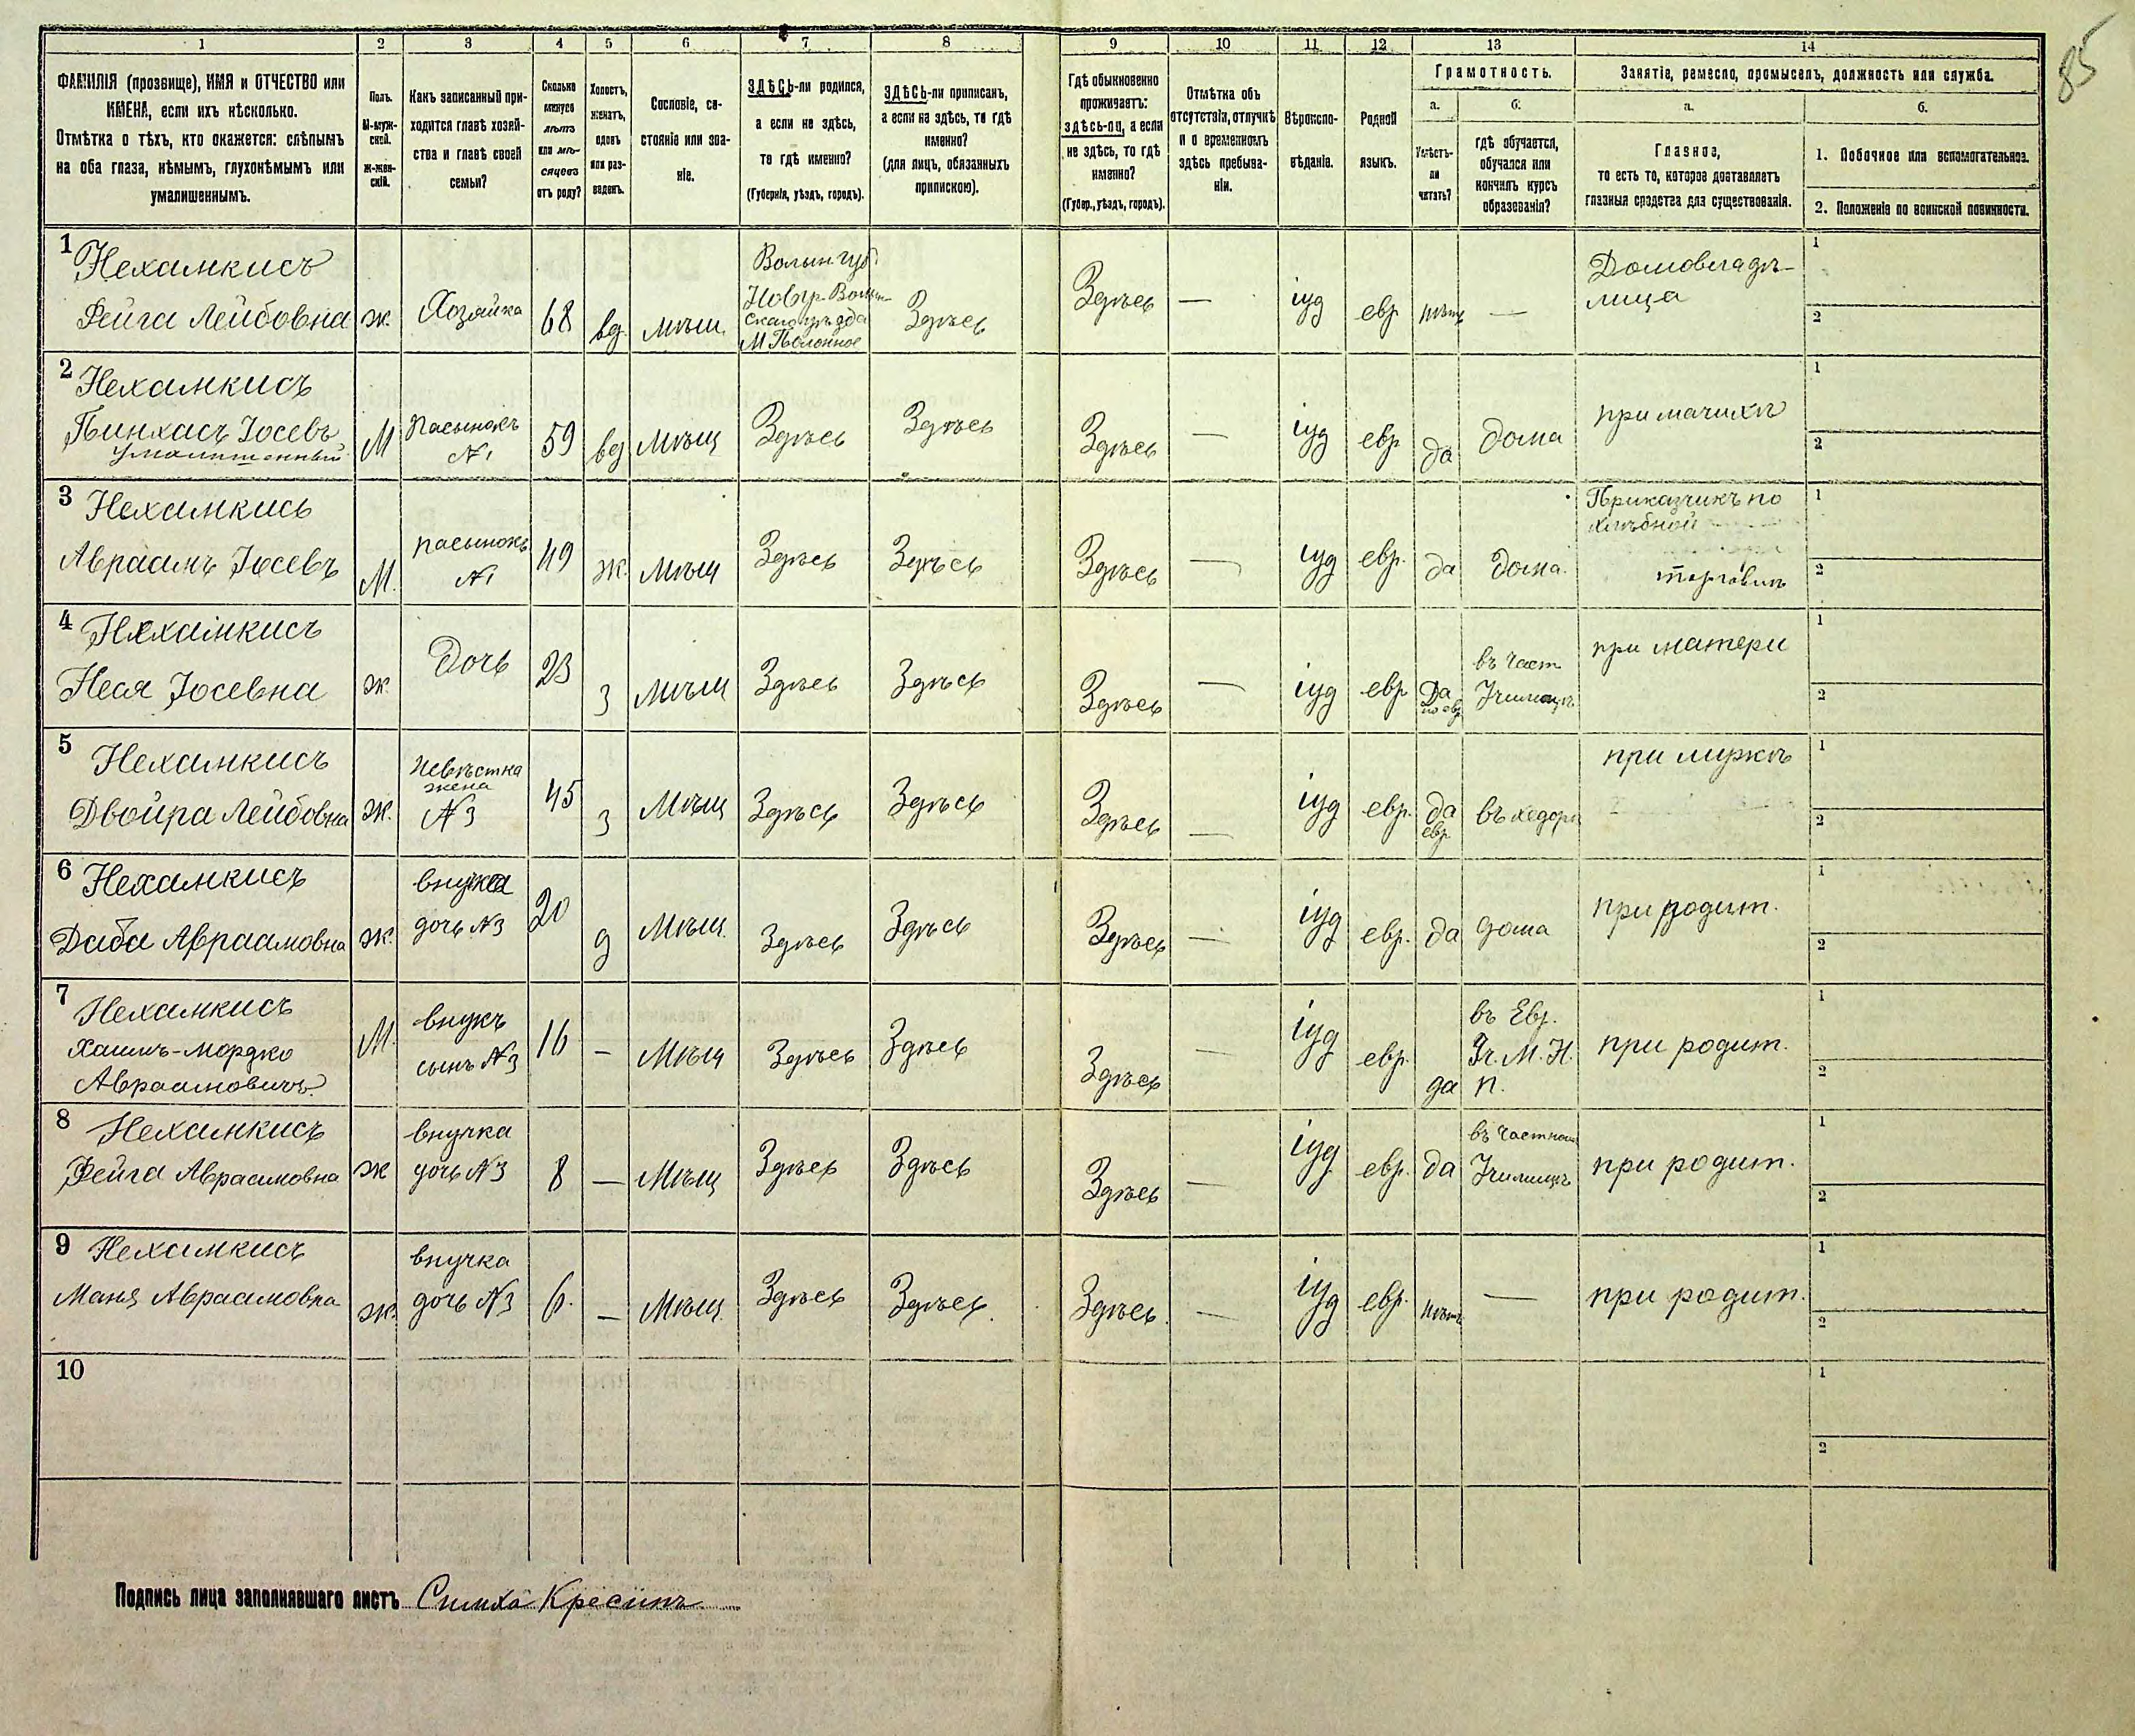 85
1 2 3 4 5 6 7 8 9 10 11 12 13 14
ФАМИЛІЯ (прозвище), ИМЯ и ОТЧЕСТВО или
ИМЕНА, если ихъ нѣсколько.
Отмѣтка о тѣхъ, кто окажется: слѣпымъ
на оба глаза, нѣмымъ, глухонѣмымъ или
умалишеннымъ.
Полъ.
М-муж-
ской.
Ж-жен-
скій.
Какъ записанный при-
ходится главѣ хозяй-
ства и главѣ своей
семьи?
Сколько
минуло
лѣтъ
или мѣ-
сяцевъ
отъ роду?
Холостъ,
женатъ,
вдовъ
или раз-
веденъ.
Сословіе, со-
стояніе или зва-
ніе.
ЗДѢСЬ-ли родился,
а если не здѣсь,
то гдѣ именно?
(Губернія, уѣздъ, городъ).
ЗДѢСЬ-ли приписанъ,
а если не здѣсь, то гдѣ
именно?
(для лицъ, обязанныхъ
припискою).
Гдѣ обыкновенно
проживаетъ:
здѣсь-ли, а если
не здѣсь, то гдѣ
именно?
(Губер., уѣздъ, городъ).
Отмѣтка объ
отсутствіи, отлучкѣ
и о временномъ
здѣсь пребыва-
ніи.
Вѣроиспо-
вѣданіе.
Родной
языкъ.
Грамотность.
а.
Умѣетъ-
ли
читать?
б.
гдѣ обучается,
обучался или
кончилъ курсъ
образованія?
Занятіе, ремесло, промыселъ, должность или служба.
а.
Главное,
то есть то, которое доставляетъ
главныя средства для существованія.
б.
1. Побочное или вспомогательное.
2. Положеніе по воинской повинности.
1 Нехамкисъ
Фейга Лейбовна
ж.
Хозяйка
68
вд.
мѣщ.
Волын. губ.
Новгр. Волын-
скаго уѣзда
М. Полонное
Здѣсь
Здѣсь
—
іуд
евр
нѣтъ
—
Домовладѣ-
лица
1
2
2 Нехамкисъ
Пинхасъ Іосевъ
умалишенный
М
Пасынокъ
№1
59
вд
Мѣщ
Здѣсь
Здѣсь
Здѣсь
—
іуд
евр
да
дома
при мачихѣ
1
2
3 Нехамкись
Авраамъ Іосевъ
М.
пасынокъ
№1
49
ж.
Мѣщ
Здѣсь
Здѣсь
Здѣсь
—
іуд
евр.
да
Дома.
Приказчикъ по
хлѣбной
торговлѣ
1
2
4 Нехамкисъ
Неся Іосевна
ж.
Дочь
23
з
Мѣщ
Здѣсь
Здѣсь
Здѣсь
—
іуд
евр
Да
по евр.
въ част
Училищѣ
при матери
1
2
5 Нехамкисъ
Двойра Лейбовна
ж.
Невѣстка
жена
№3
45
з
Мѣщ
Здѣсь
Здѣсь
Здѣсь
—
іуд
евр.
да
евр.
въ хедерѣ
при мужѣ
1
2
6 Нехамкисъ
Даба Авраамовна
ж.
внучка
дочь №3
20
д
Мѣщ.
Здѣсь
Здѣсь
Здѣсь
—
іуд
евр.
да
дома
при родит.
1
2
7 Нехамкисъ
Хаимъ-Мордко
Авраамовичъ
М.
внукъ
сынъ №3
16
—
Мѣщ
Здѣсь
Здѣсь
Здѣсь
—
іуд
евр.
да
въ Евр.
Уч. М. Н.
П.
при родит.
1
2
8 Нехамкисъ
Фейга Авраамовна
ж
внучка
дочь №3
8
—
Мѣщ
Здѣсь
Здѣсь
Здѣсь
—
іуд
евр.
да
въ Частном
Училищѣ
при родит.
1
2
9 Нехамкисъ
Маня Авраамовна
ж.
внучка
дочь №3
6.
—
Мѣщ.
Здѣсь
Здѣсь.
Здѣсь.
—
іуд
евр.
нѣтъ
—
при родит.
1
2
10
1
2
Подпись лица заполнявшаго листъ Симха Кресинъ